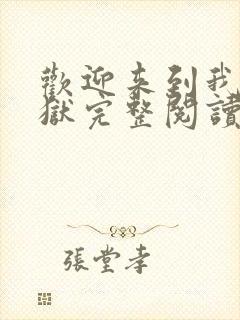 歡迎來到我
獄完整閱讀
張堂孝